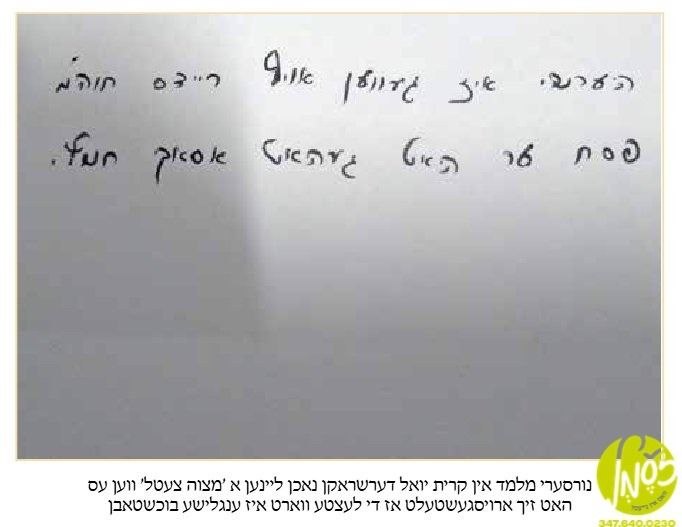 הערשי איז געווען אויף ריידס חוה"מ
פסח ער האט געהאט אסאך חמץ.
נורסערי מלמד אין קרית יואל דערשראקן נאכן ליינען א 'מצוה צעטל' ווען עס
האט זיך ארויסגעשטעלט אז די לעצטע ווארט איז ענגלישע בוכשטאבן
347.640.0230